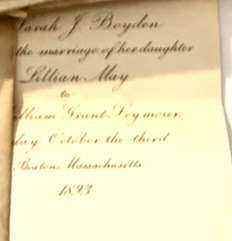 Sarah J Boyden
the marriage of her daughter
Lillian May
to
Grant Seymour
October the third
Boston Massachusetts
1893